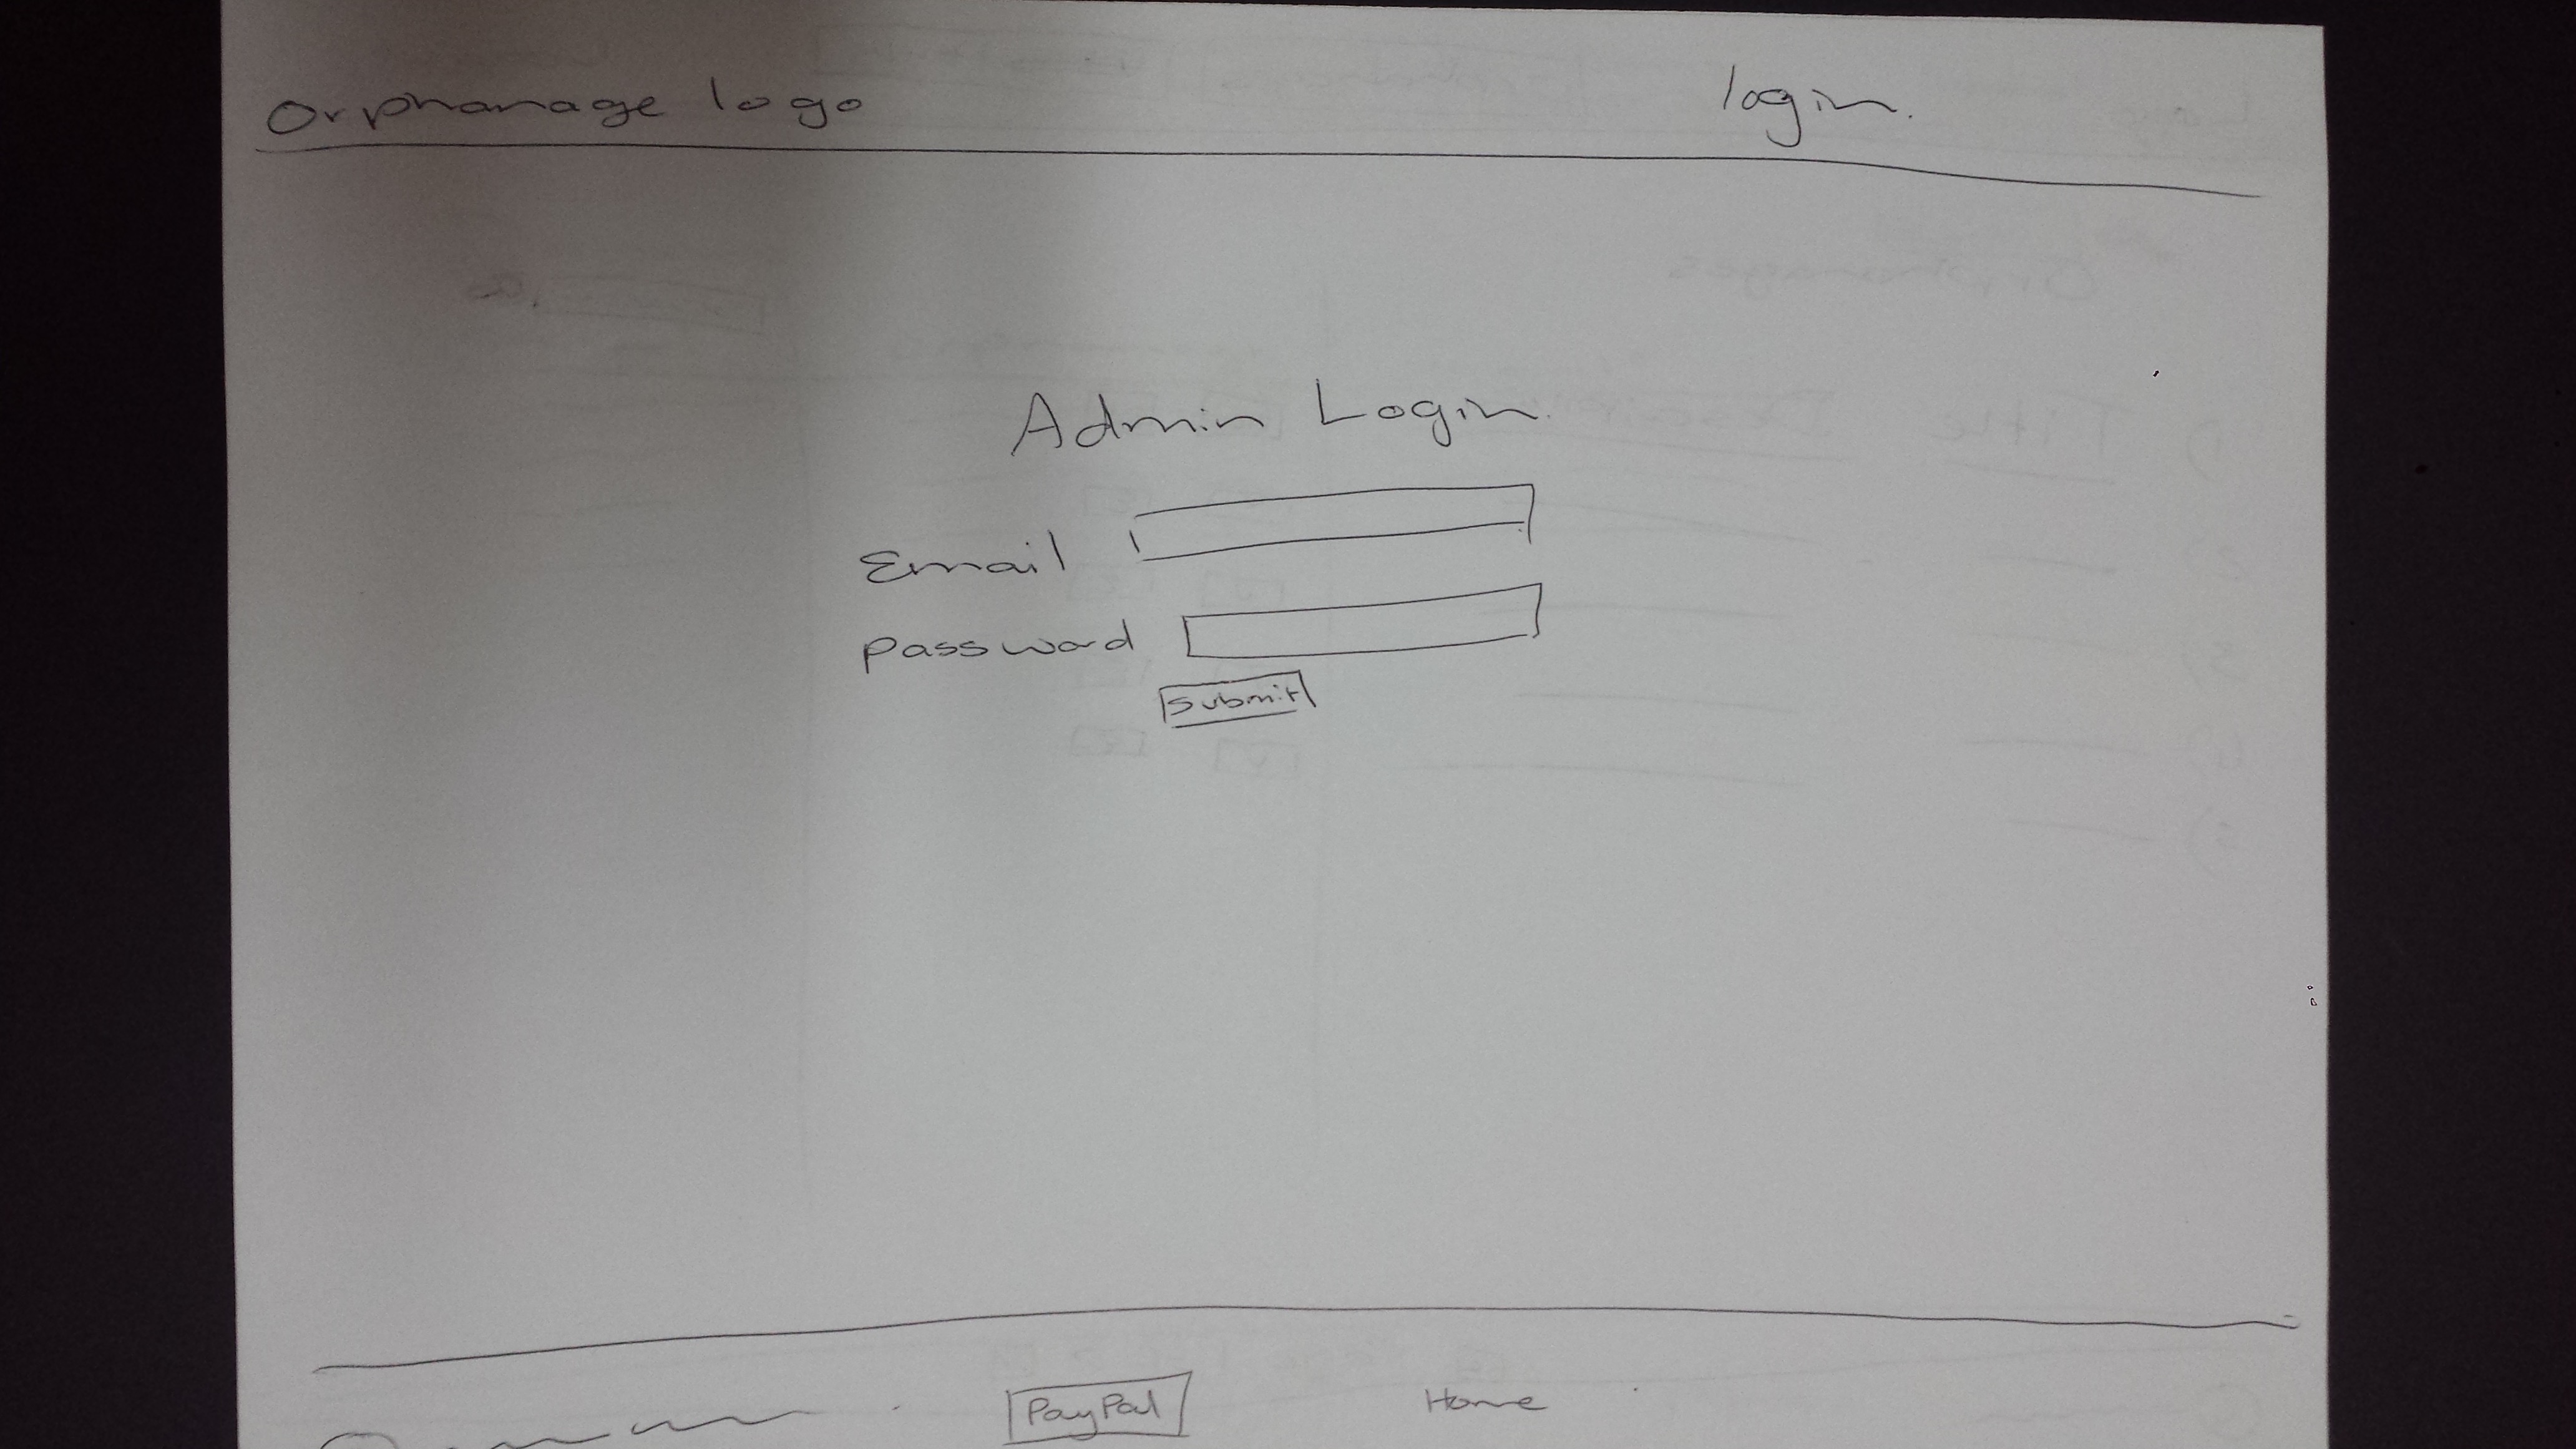 Orphanage logo
login.
Admin Login.
Email
password
Submit
PayPal
Home